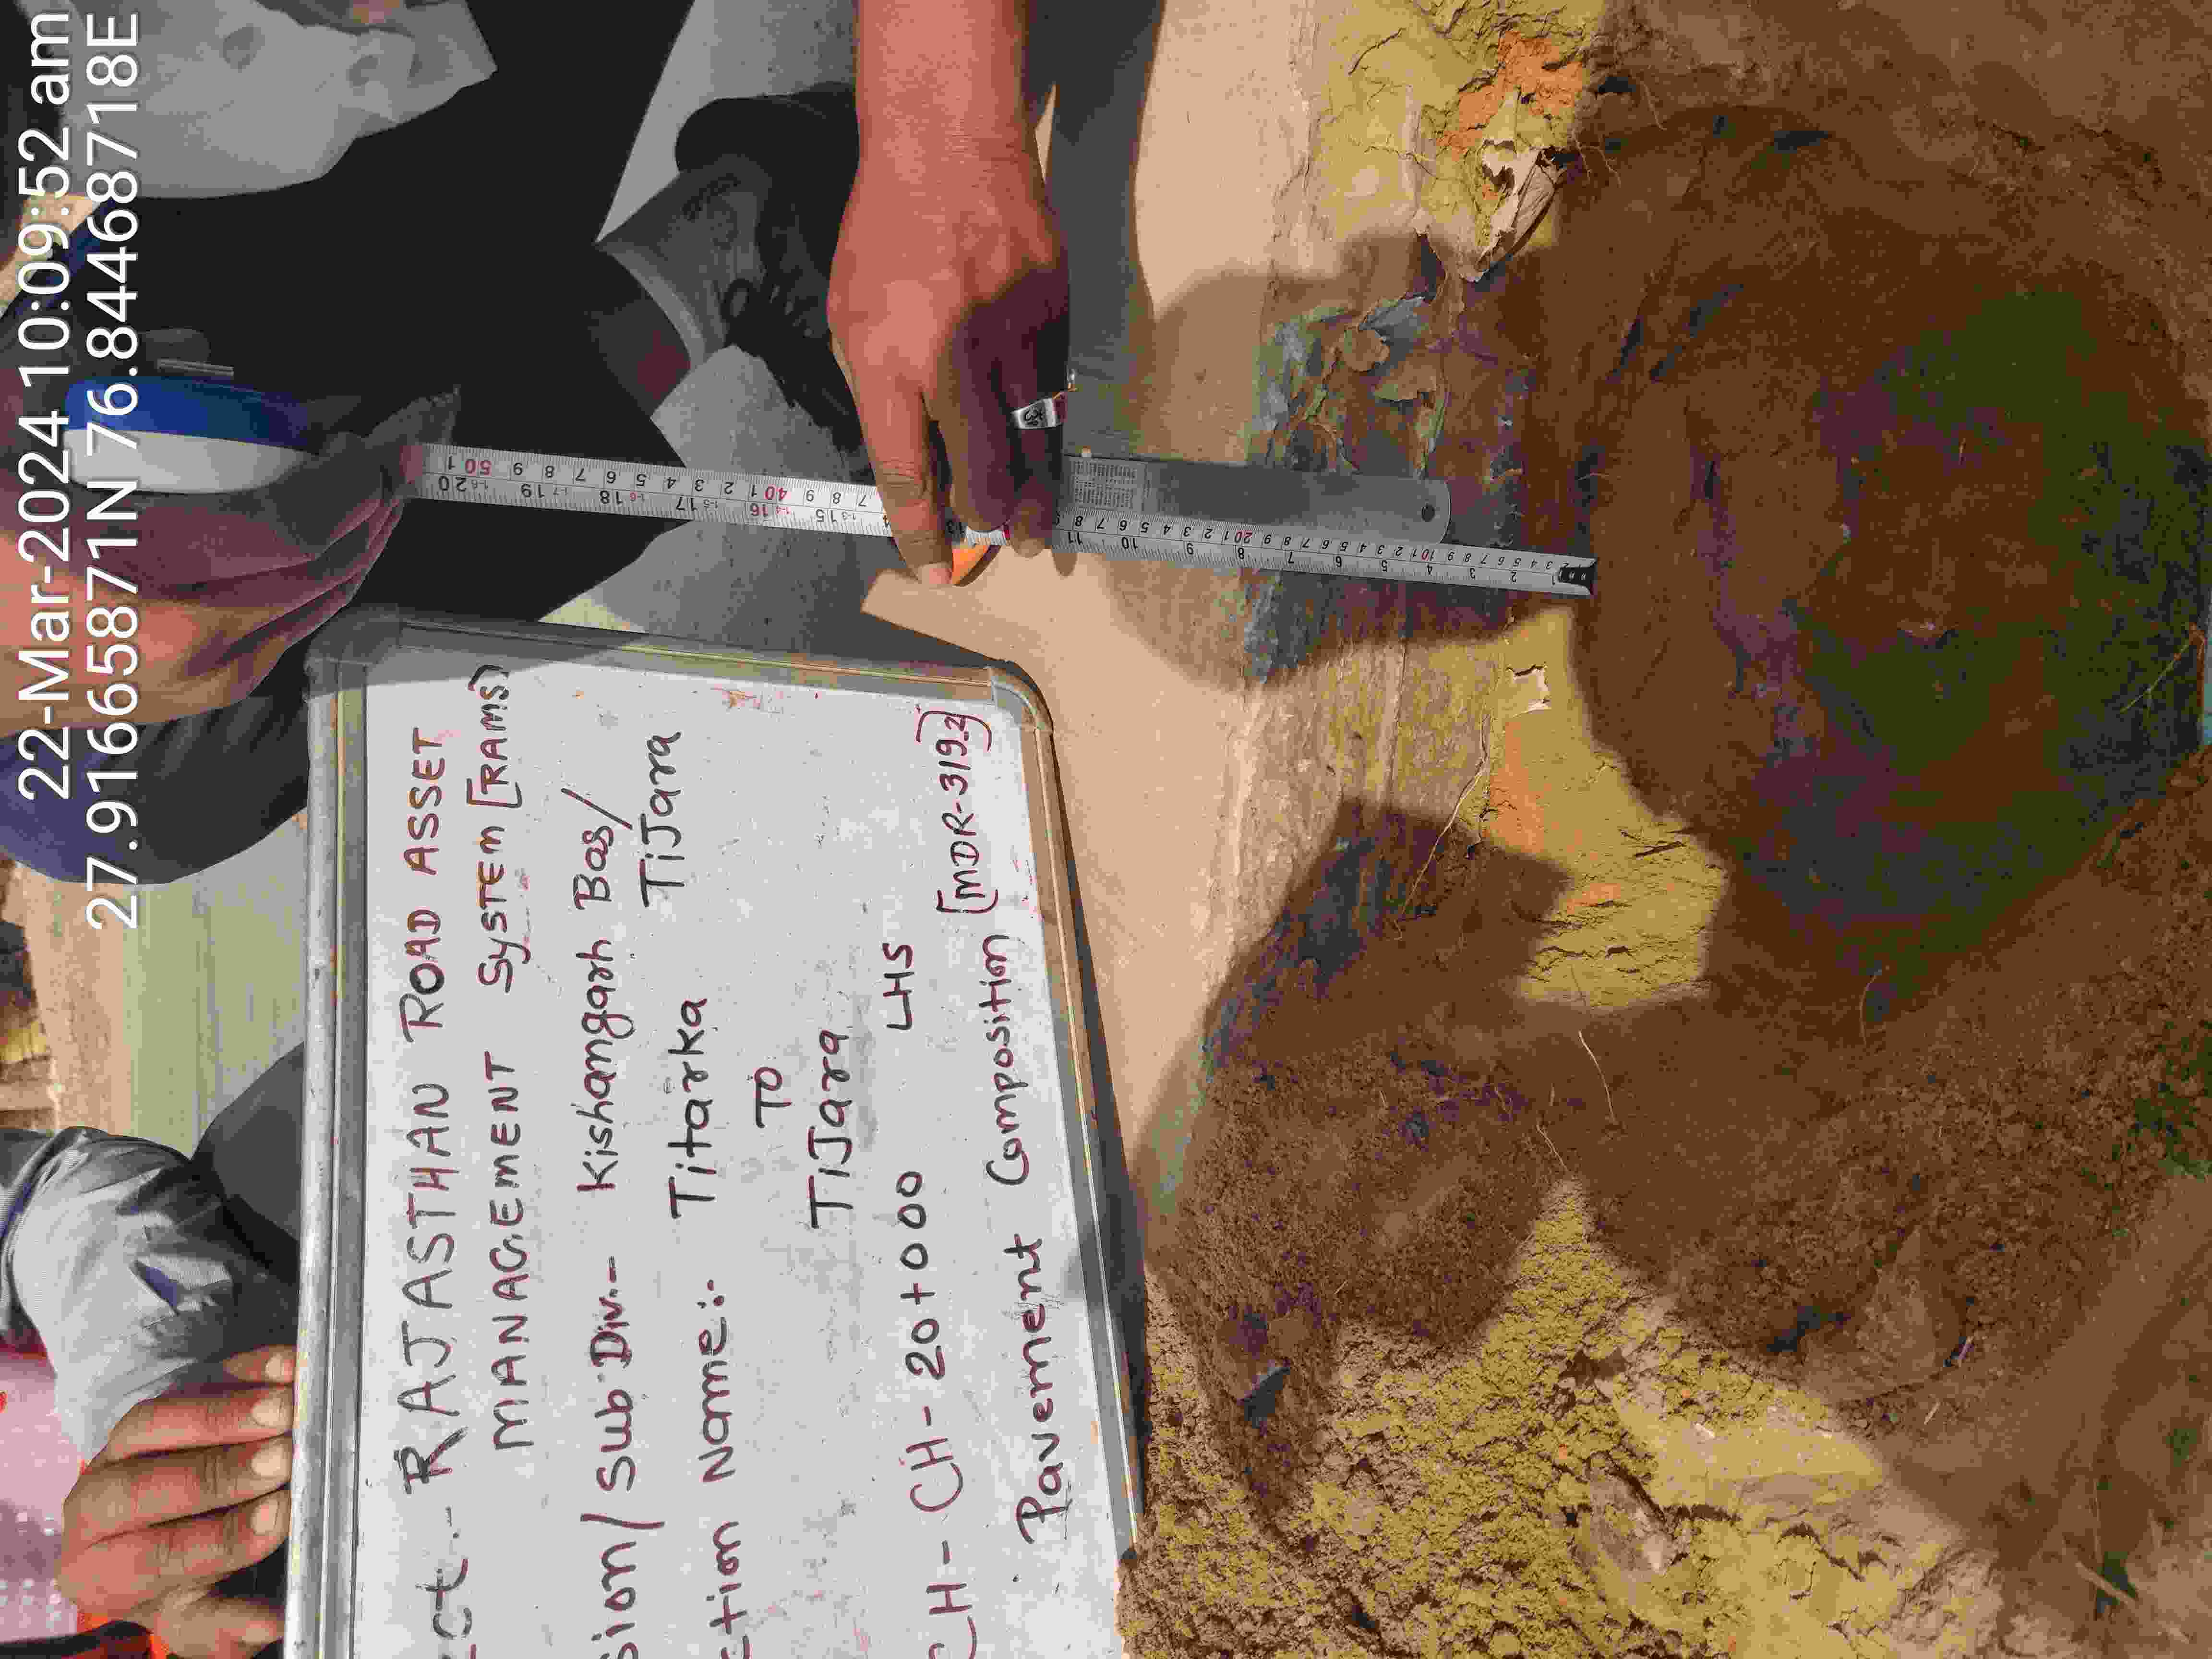 22-Mar-2024 10:09:52 am
27.91665871N 76.844688718E
RAJASTHAN ROAD ASSET
MANAGEMENT SYSTEM [RAMS]
Sub Div.- Kishangarh Bas/
TiJara
Name:- Titarka
TO
TiJara
CH- CH- 20+000 LHS
Pavement Composition [MDR-319.2]